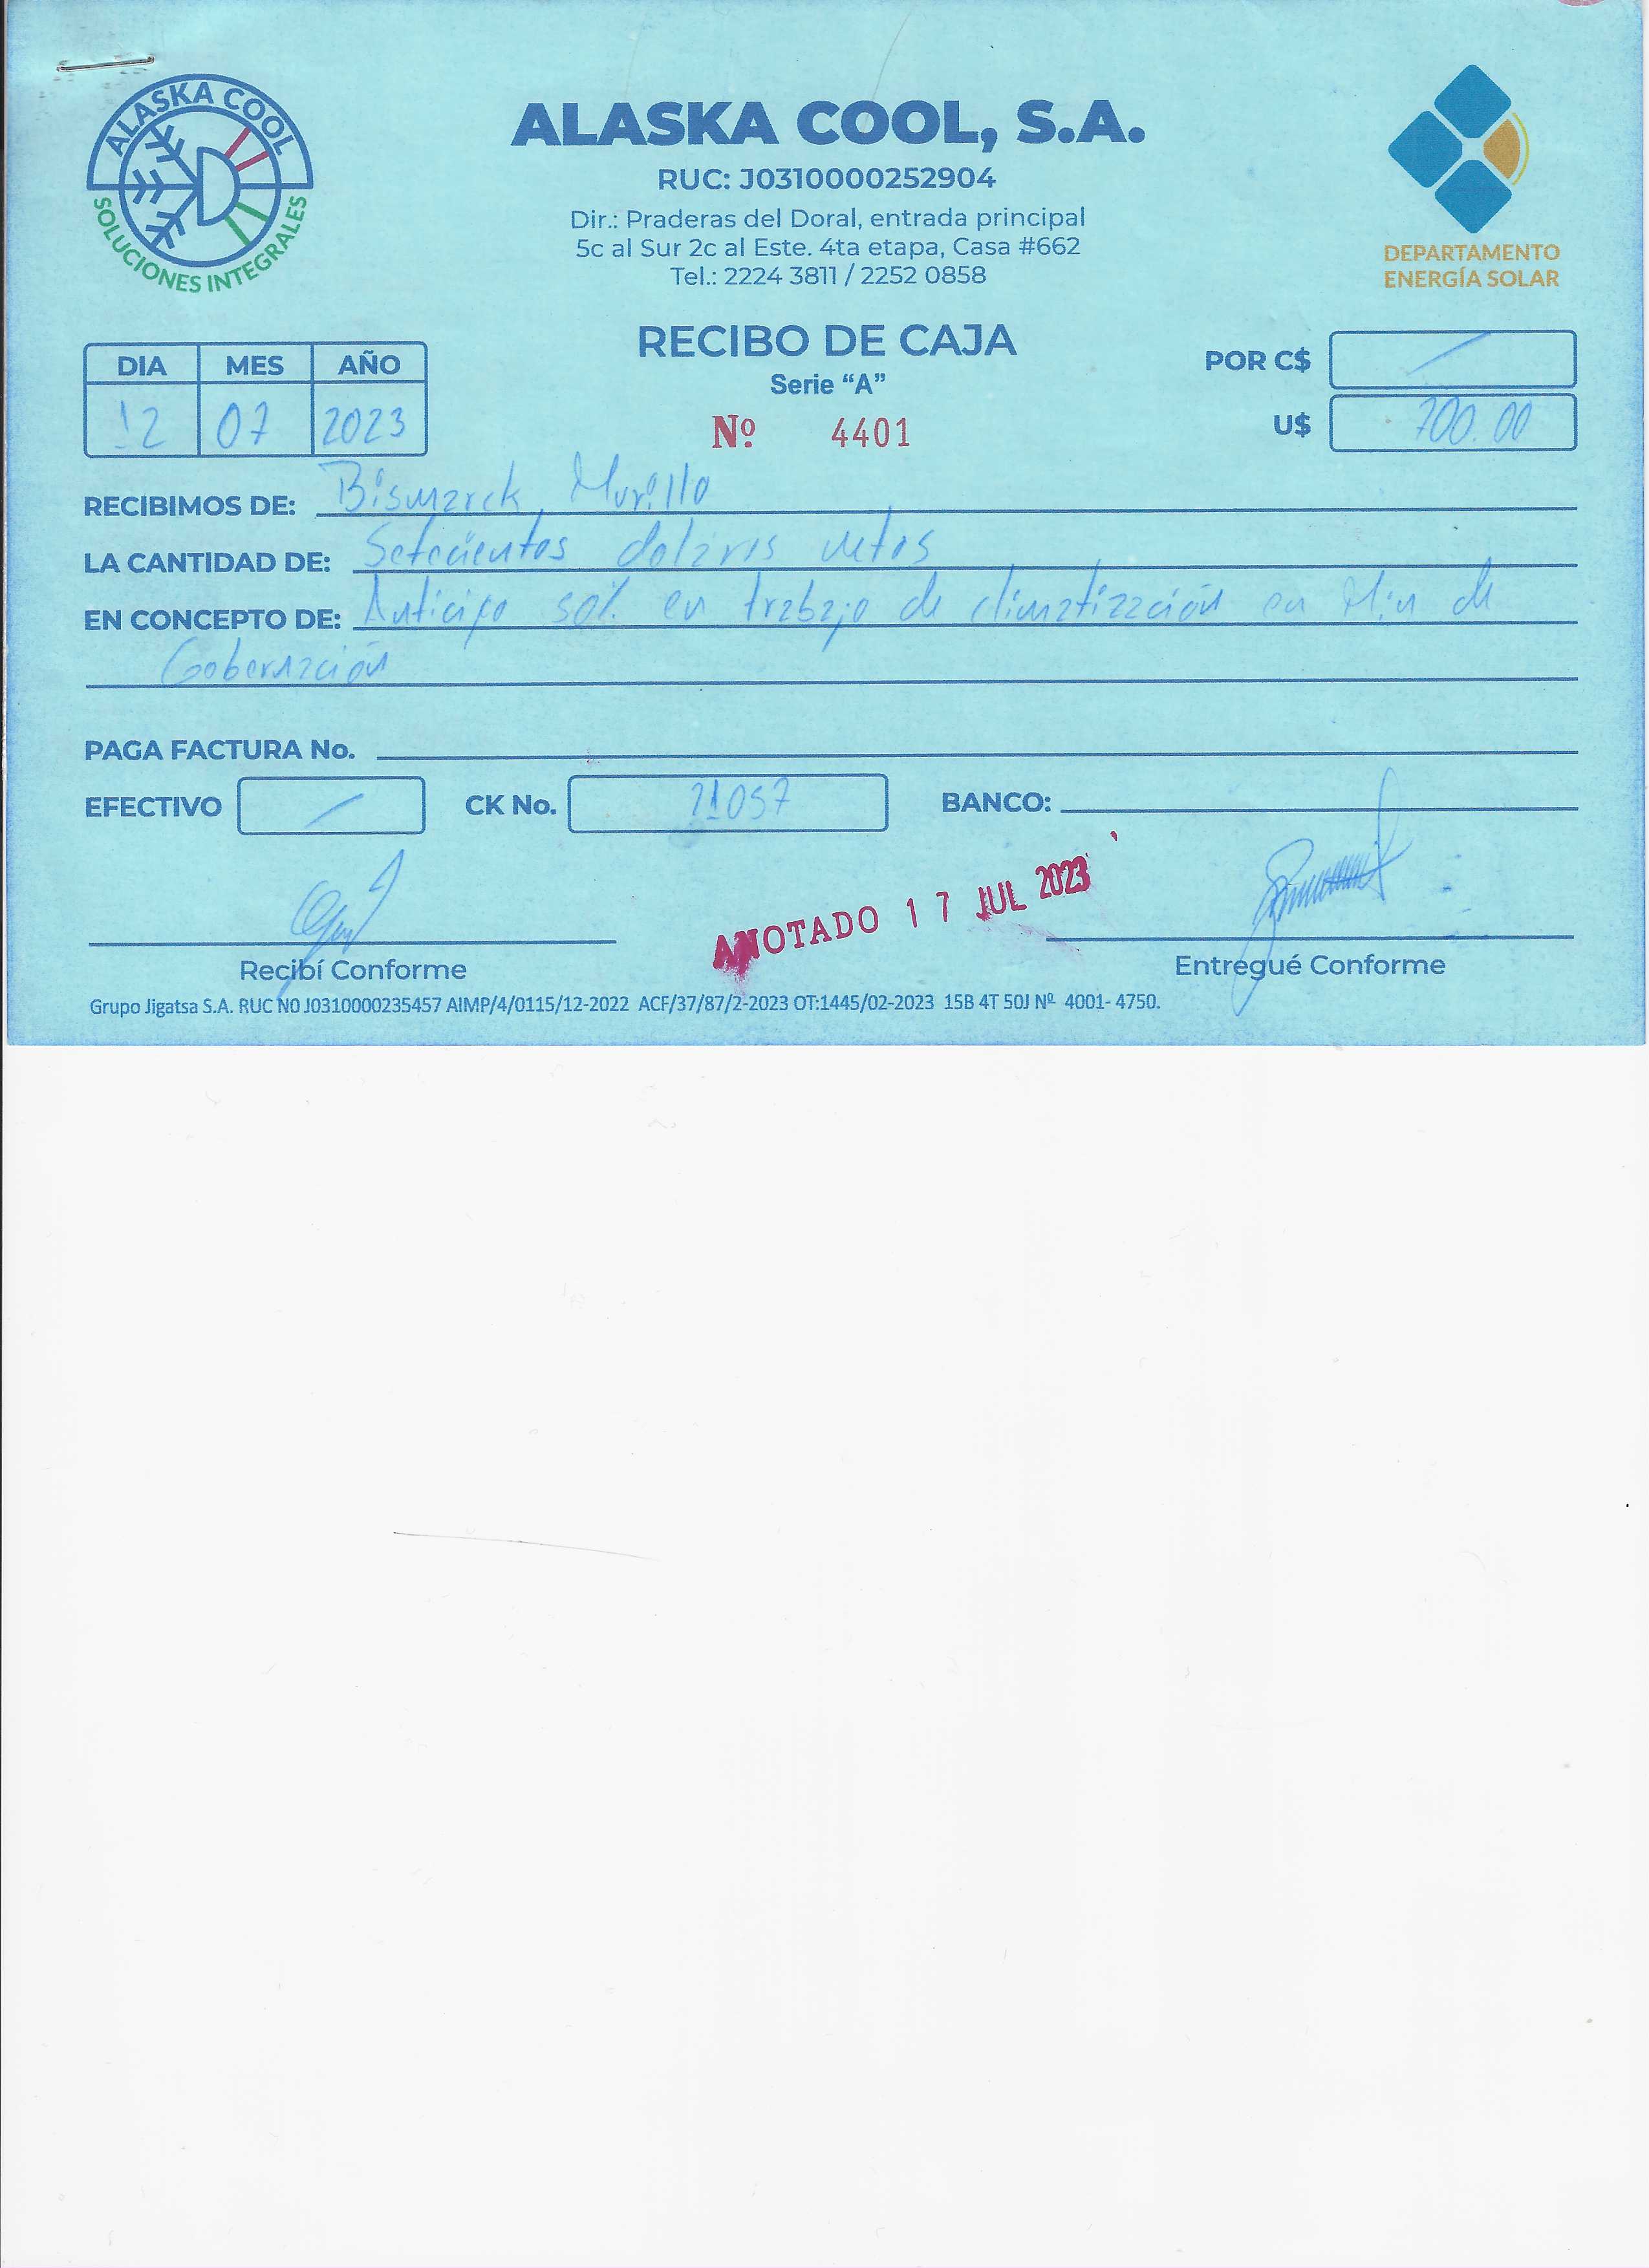 ALASKA COOL
SOLUCIONES INTEGRALES
ALASKA COOL, S.A.
RUC: J0310000252904
Dir.: Praderas del Doral, entrada principal
5c al Sur 2c al Este. 4ta etapa, Casa #662
Tel.: 2224 3811 / 2252 0858
DEPARTAMENTO
ENERGÍA SOLAR
RECIBO DE CAJA
Serie “A”
Nº 4401
DIA MES AÑO
12 07 2023
POR C$
U$ 700.00
RECIBIMOS DE: Bismarck Murillo
LA CANTIDAD DE: Setecientos dolares netos
EN CONCEPTO DE: Anticipo 50% en trabajo de climatización en Min de
Gobernación
PAGA FACTURA No.
EFECTIVO CK No. 21057 BANCO:
ANOTADO 17 JUL 2023
Recibí Conforme Entregué Conforme
Grupo Jigatsa S.A. RUC N0 J0310000235457 AIMP/4/0115/12-2022 ACF/37/87/2-2023 OT:1445/02-2023 15B 4T 50J Nº 4001- 4750.